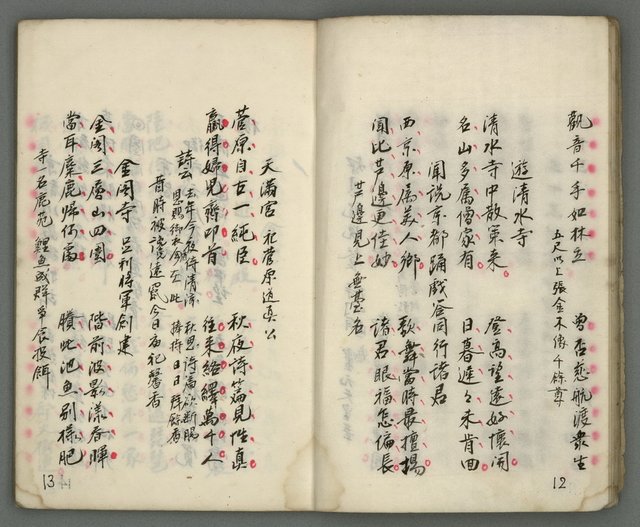 觀音千手如林立 曾否慈航渡衆生
五尺以上張金不僅千餘尊
遊清水寺
清水寺中散策來 登高望遠好懷開
名山多屬僧家有 日暮遲々未肯回
聞説京都踊戲簽同行諸君
西京原屬美人鄉 歌舞當時最擅場
聞比芦邊更佳妙 諸君眼福怎偏長
芦邊見上無基名
12
天滿宮 祀菅原道真公
菅原自古一純臣 秋夜詩篇見性真
贏得婦兒齊叩首 往來絡繹萬千人
詩云 去年今夜待清涼 秋思詩篇欲斷腸
恩賜御衣今在此 捧持日日拜餘香
昔時被讒遠竄今日廟祀馨香
金閣寺 足利將軍創建
金閣三層山四圍 階前波影漾春暉
當年麋鹿歸何處 賸此池魚別樣肥
寺一名鹿苑 鯉魚成群爭食投餌
13